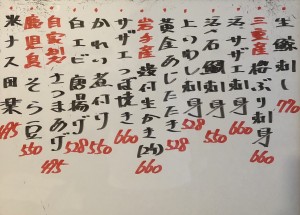 生 刺し 770
三重産 梅ぶり刺身 660
活サザエ刺身 660
石鯛刺身
刺身 528
黄金あじたたき
岩手産 殻付生かき(2ケ) 660
サザエつぼ焼き 660
かれい煮付け 550
白エビ唐揚げ 528
自家製 さつまあげ 495
鹿児島 そら豆 550
米ナス田楽 495